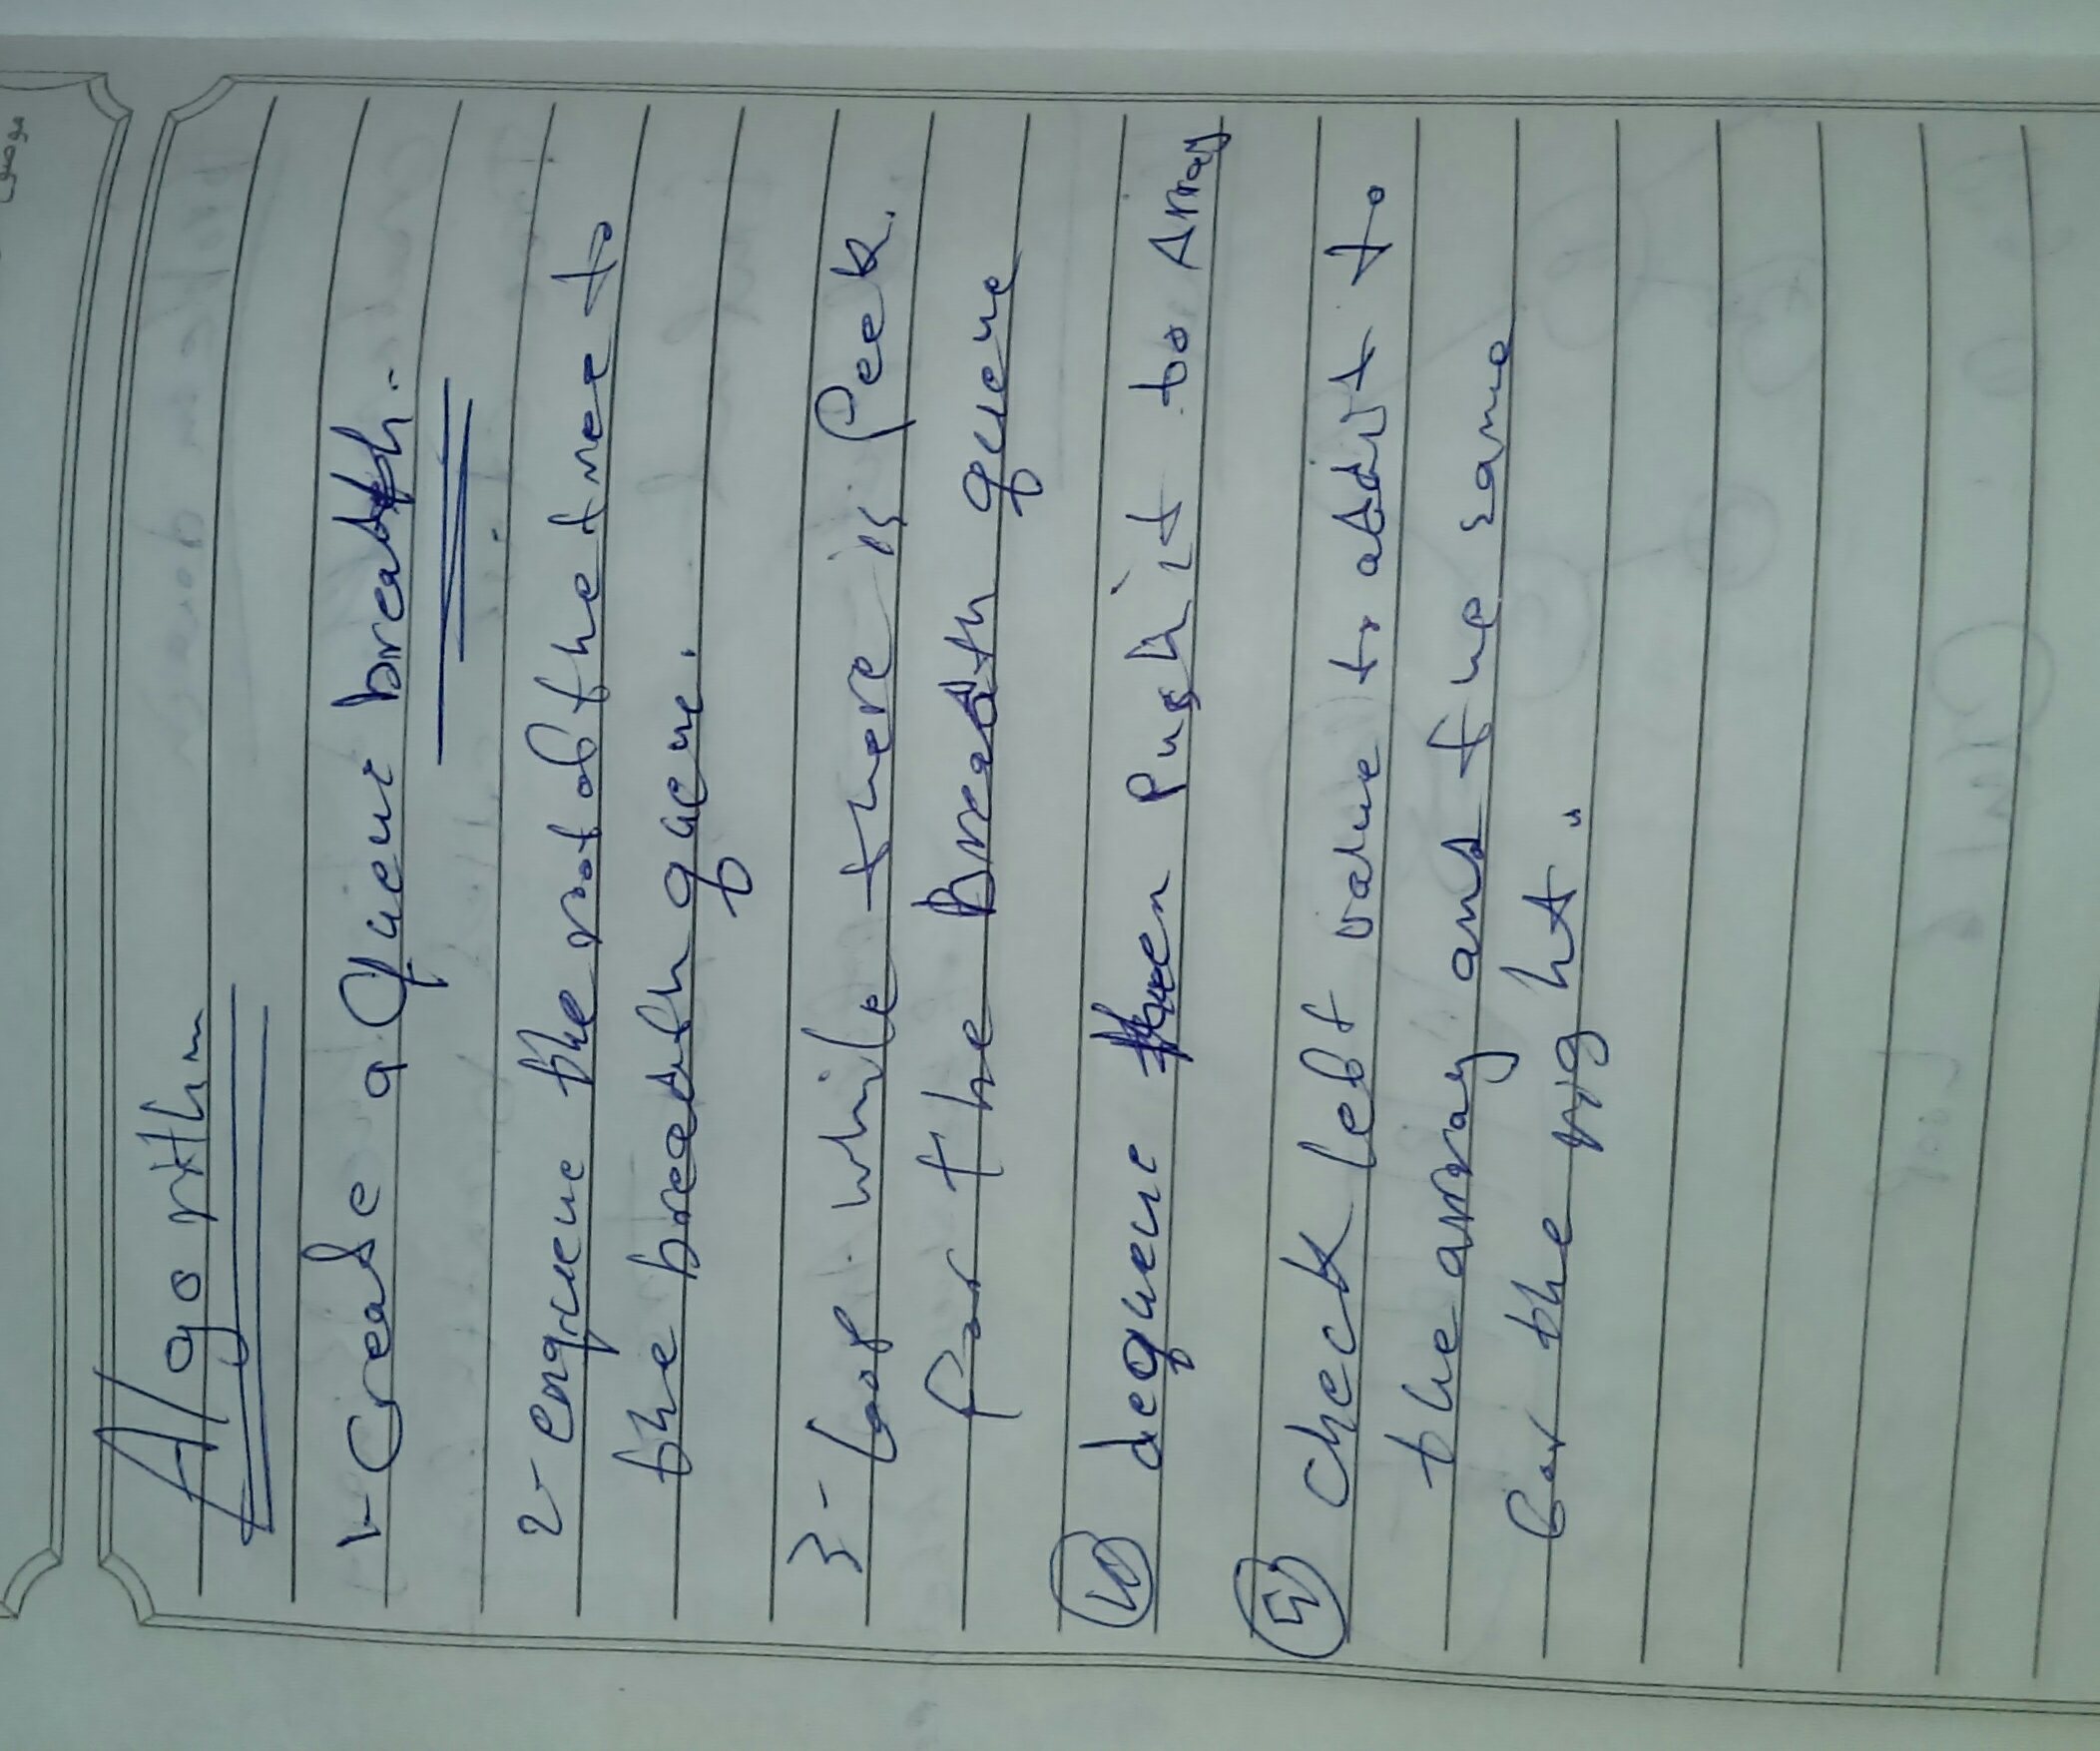 Algorithm
1- Create a Queue breadth.
2- enqueue the root of the tree to
the breadth queue.
3- loop while there is Peek.
for the Breadth queue
4 dequeue then Push it to Array
5 check left value to add it to
the array and the same
for the right.